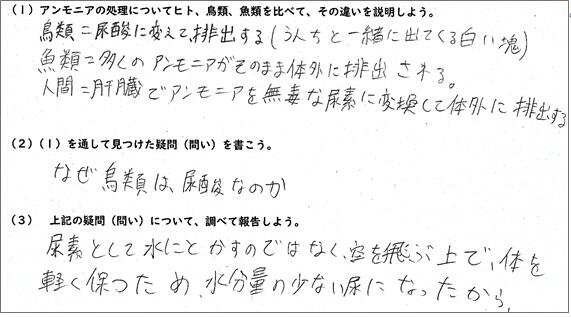 (1) アンモニアの処理についてヒト、鳥類、魚類を比べて、その違いを説明しよう。
鳥類=尿酸に変えて排出する(うんちと一緒に出てくる白い塊)
魚類=多くのアンモニアがそのまま体外に排出される。
人間=肝臓でアンモニアを無毒な尿素に変換して体外に排出する
(2)(1)を通して見つけた疑問(問い)を書こう。
なぜ鳥類は、尿酸なのか
(3) 上記の疑問(問い)について、調べて報告しよう。
尿素として水にとかすのではなく、空を飛ぶ上で、体を
軽く保つため、水分量の少ない尿になったから。